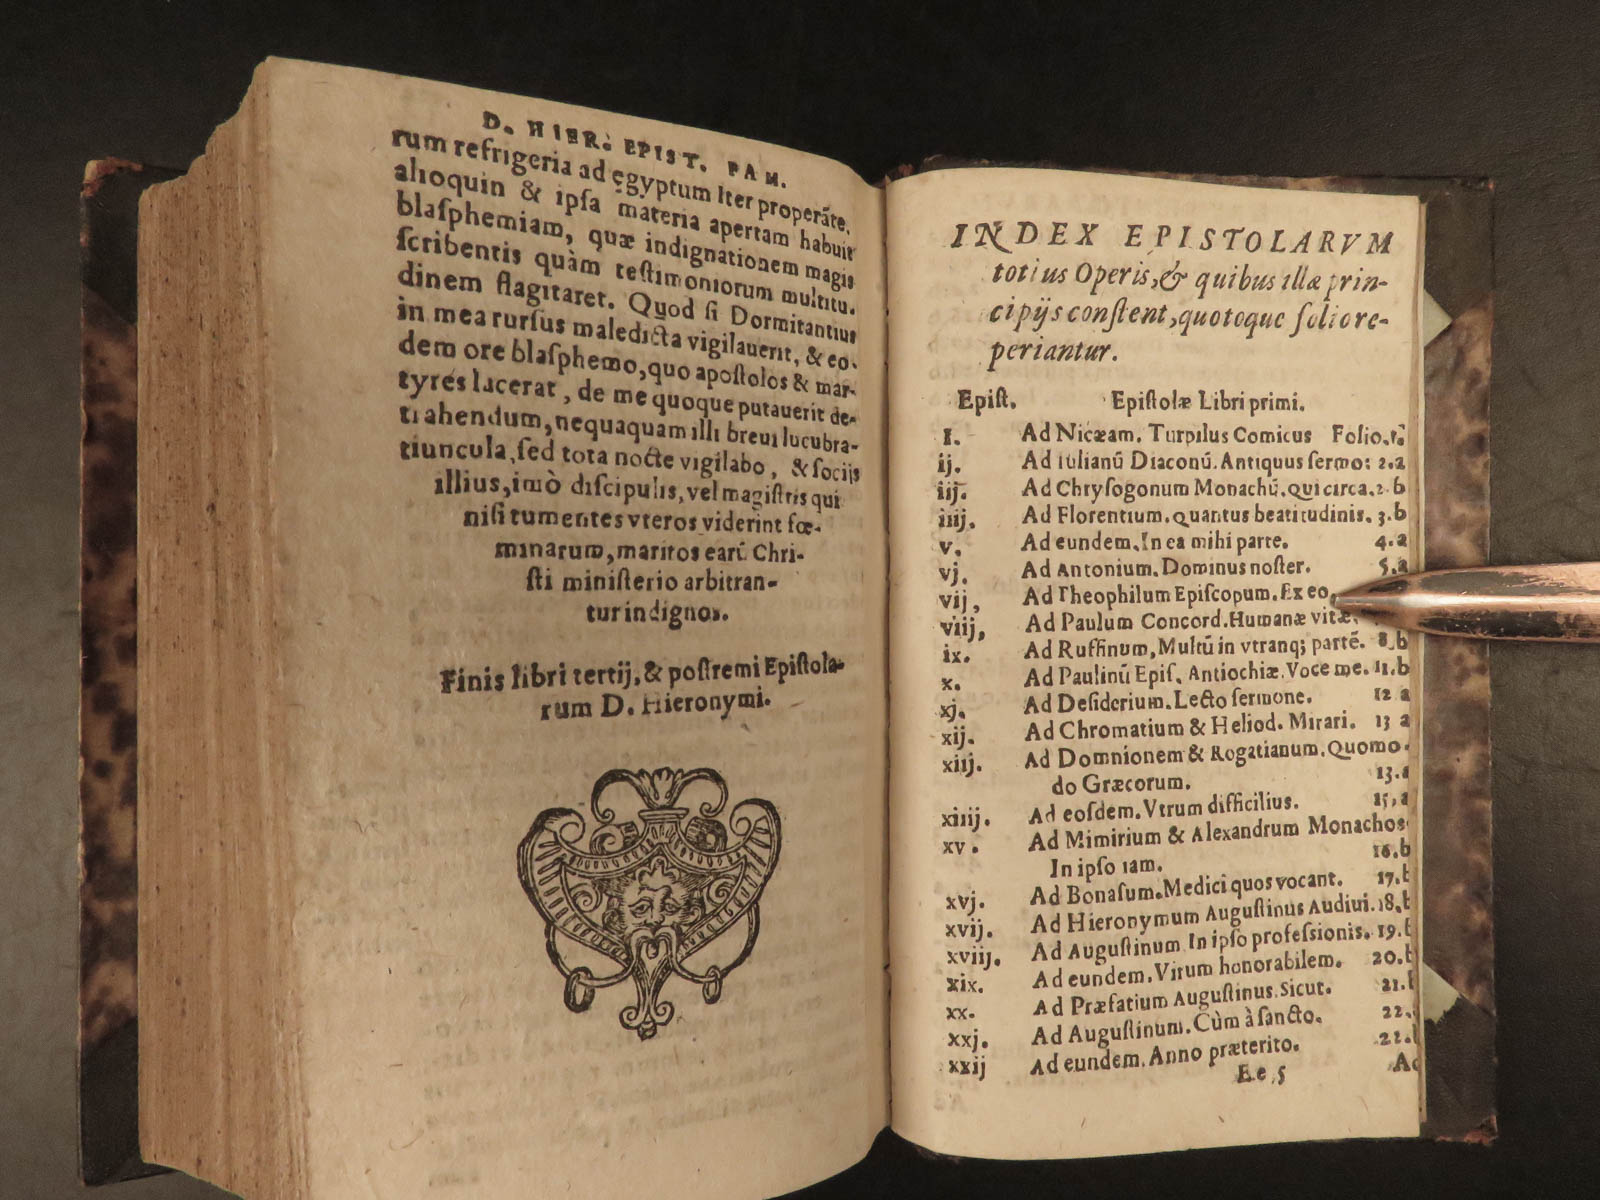 D. HIER. EPIST. FAM.
rum refrigeria ad ęgyptum iter properãte.
alioquin & ipſa materia apertam habuit
blaſphemiam, quæ indignationem magis
ſcribentis quàm teſtimoniorum multitu.
dinem flagitaret. Quod ſi Dormitantius
in mea rurſus maledicta vigilauerit, & eo.
dem ore blaſphemo, quo apoſtolos & mar-
tyres lacerat, de me quoque putauerit de-
trahendum, nequaquam illi breui lucubra-
tiuncula, ſed tota nocte vigilabo, & ſocijs
illius, imò diſcipulis, vel magiſtris qui
niſi tumentes vteros viderint fœ-
minarum, maritos earũ Chri-
ſti miniſterio arbitran-
tur indignos.
Finis libri tertij, & poſtremi Epiſtola-
rum D. Hieronymi.
INDEX EPISTOLARVM
totius Operis, & quibus illæ prin-
cipijs conſtent, quotoque folio re-
periantur.
Epiſt. Epiſtolæ Libri primi.
I. Ad Nicæam. Turpilus Comicus Folio.
ij. Ad Iulianũ Diaconũ. Antiquus ſermo: 2.a
iij. Ad Chryſogonum Monachũ. qui circa. 2.b
iiij. Ad Florentium. quantus beatitudinis. 3.b
v. Ad eundem. In ea mihi parte. 4.a
vj. Ad Antonium. Dominus noſter. 5.a
vij, Ad Theophilum Epiſcopum. Ex eo.
viij, Ad Paulum Concord. Humanæ vitæ.
ix. Ad Ruffinum, Multũ in vtranq; partẽ. 8.b
x. Ad Paulinũ Epiſ. Antiochiæ. Voce me. 11.b
xj. Ad Deſiderium. Lecto ſermone. 12 a
xij. Ad Chromatium & Heliod. Mirari. 13 a
xiij. Ad Domnionem & Rogatianum. Quomo-
do Græcorum. 13.a
xiiij. Ad eoſdem. Vtrum difficilius. 15.a
xv. Ad Mimirium & Alexandrum Monachos.
In ipſo iam. 16.b
xvj. Ad Bonaſum. Medici quos vocant. 17.b
xvij. Ad Hieronymum Auguſtinus Audiui. 18.b
xviij. Ad Auguſtinum In ipſo profeſsionis. 19.b
xix. Ad eundem. Virum honorabilem. 20.b
xx. Ad Præfatium Auguſtinus. Sicut. 21.b
xxj. Ad Auguſtinum. Cùm à ſancto. 22.
xxij Ad eundem. Anno præterito. 22.b
Ee 5 Ad